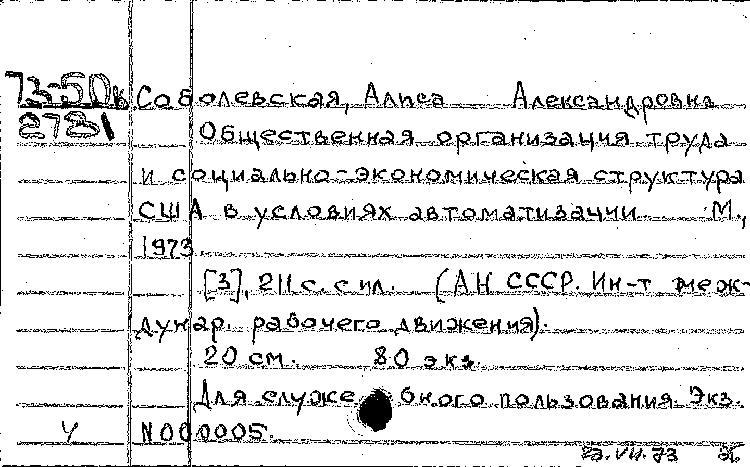 73-50к Соболевская, Алиса Александровна
2731 Общественная организация труда
и социально-экономическая структура
США в условиях автоматизации. М.,
1973.
[3], 211 с. с ил. (АН СССР. Ин-т меж-
дунар. рабочего движения).
20 см. 80 экз.
Для служебного пользования. Экз.
У N000005.
23.VII.73